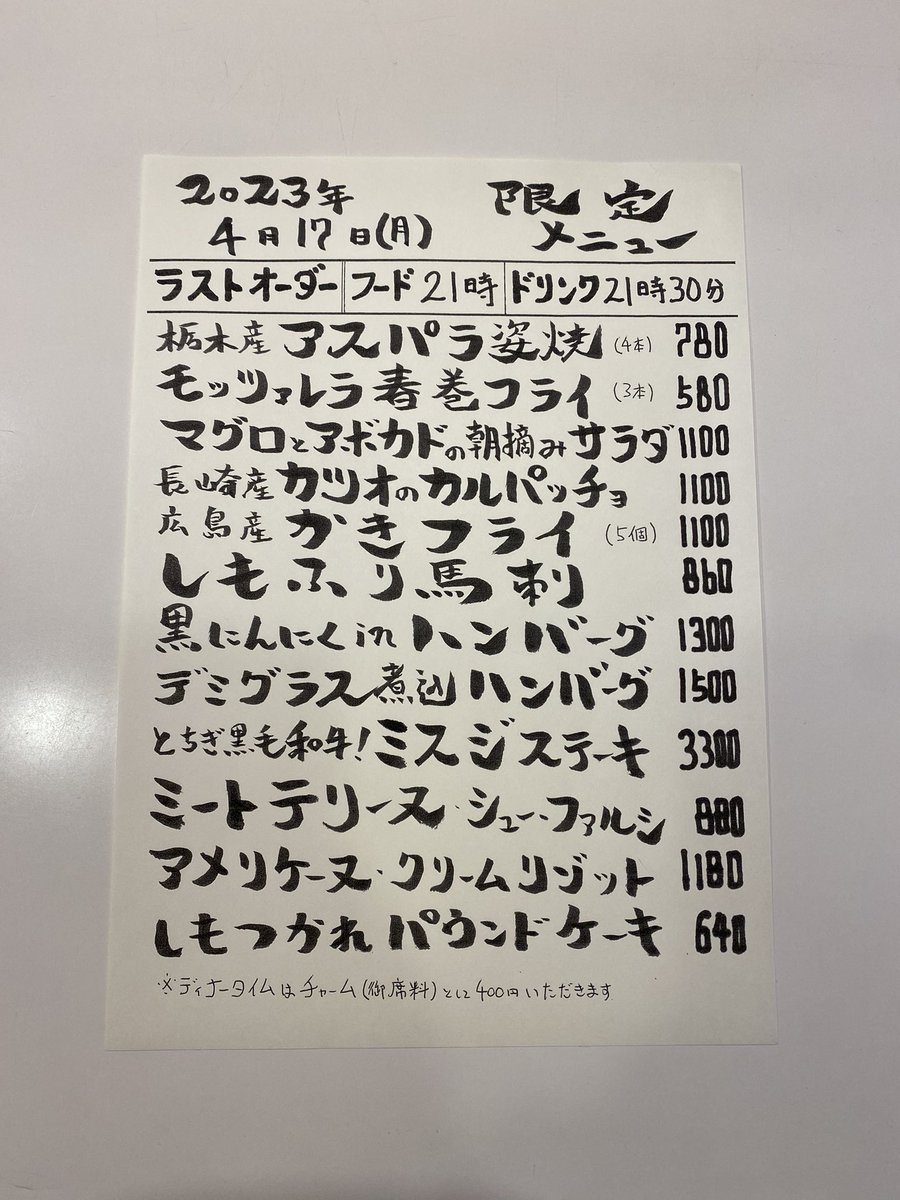 2023年 限定
4月17日(月) メニュー
ラストオーダー フード21時 ドリンク21時30分
栃木産 アスパラ姿焼 (4本) 780
モッツァレラ春巻フライ (3本) 580
マグロとアボカドの朝摘みサラダ 1100
長崎産 カツオのカルパッチョ 1100
広島産 かきフライ (5個) 1100
しもふり馬刺 860
黒にんにくinハンバーグ 1300
デミグラス煮込ハンバーグ 1500
とちぎ黒毛和牛!ミスジステーキ 3300
ミートテリーヌ・シュー・ファルシ 880
アメリケーヌ・クリームリゾット 1180
しもつかれパウンドケーキ 640
※ディナータイムはチャーム(御席料)として400円いただきます